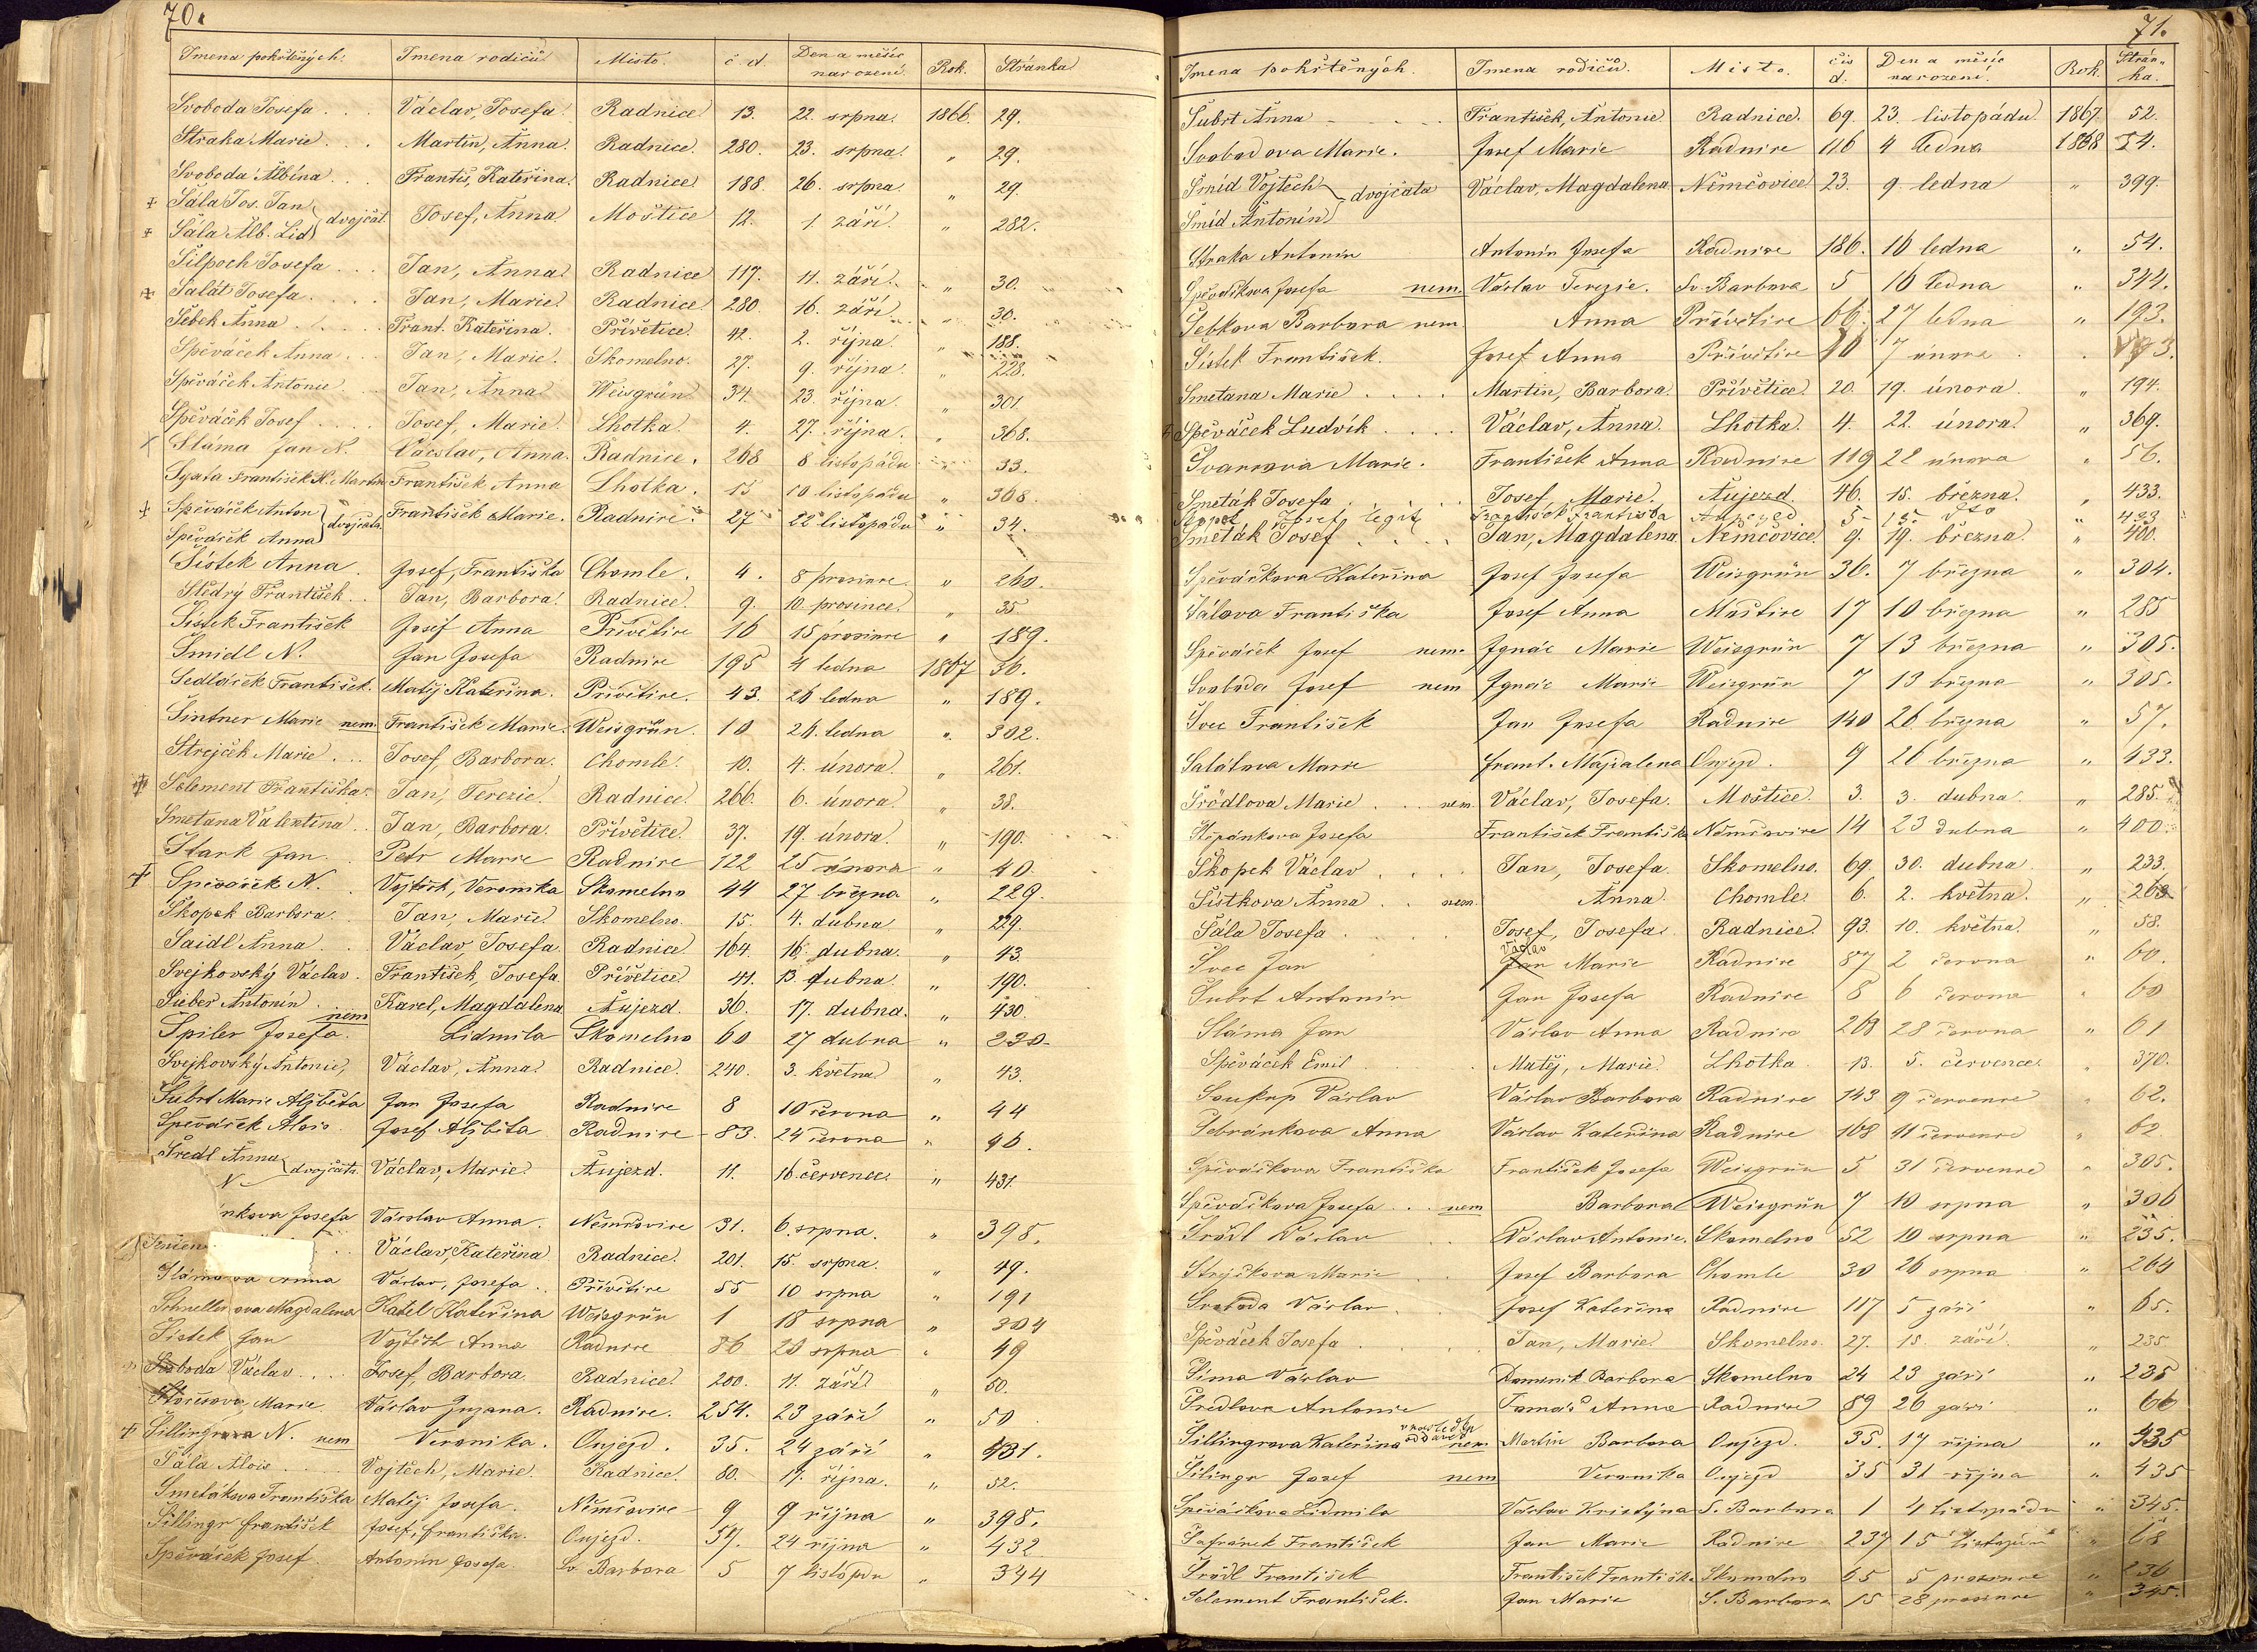 70.
Jmena pokřtěných. Jmena rodičů Místo. č d. Den a měsíc narození. Rok. Stránka
Svoboda Josefa . . . Václav, Josefa. Radnice 13. 22. srpna. 1866. 29.
Straka Marie . . . Martin, Anna. Radnice. 280. 23. srpna. " 29.
Svoboda Albína . . . Františ, Kateřina. Radnice 188. 26. srpna " 29.
Šála Jos. Jan
Šála Alb. Lid dvojčat. Josef, Anna Moštice 12. 1. září. " 282.
Šilpoch Josefa . . . Jan, Anna. Radnice 117. 11. září. " 30.
Salát Josefa . . . . Jan, Marie. Radnice 280. 16. září " 30.
Šebek Anna . . . . Frant. Kateřina. Přívětice. 42. 2. října. " 188.
Spěváček Anna . . . Jan, Marie. Skomelno. 27. 9. října. " 228.
Spěváček Antonie . . Jan, Anna Weisgrün 34. 23. října " 301
Spěváček Josef . . . . Josef, Marie. Lhotka. 4. 27. října. " 368.
Sláma Jan N. Vácslav, Anna. Radnice. 268 8 listopádu " 33.
František N. Martin František Anna Lhotka. 15 10 listopádu " 368.
Spěváček Anton
Spěváček Anna dvojčata František Marie. Radnice. 27 22 listopádu " 34.
Šístek Anna Josef, Františka Chomle. 4. 8 prosince " 260.
Štědrý František . . Jan, Barbora. Radnice. 9. 10. prosince. " 35
Šístek František Josef Anna Přívětice 16 15 prosince " 189.
Šmidl N. Jan Josefa Radnice 195 4 ledna 1867 36.
Sedláček František. Matěj Kateřina. Přívětice. 43. 26 ledna " 189.
Šintner Marie nem. František Marie. Weisgrün. 10 26. ledna " 302.
Strejček Marie . . . Josef, Barbora. Chomle. 10. 4. února. " 261.
Selement Františka. Jan, Terezie. Radnice. 266. 6. února. " 38.
Smetana Valentina . . Jan, Barbora. Přívětice. 37. 19. února. " 190.
Stark Jan. Petr Marie Radnice 122 25 února " 40
Spěváček N. Vojtěch, Veronika Skomelno 44 27 března " 229.
Škopek Barbora. . Jan, Marie. Skomelno. 15. 4. dubna. " 229.
Saidl Anna . . Václav, Josefa. Radnice 164. 16. dubna. " 43.
Svejkovský Václav . František, Josefa Přívětice 41. 13. dubna. " 190.
Sieber Antonín . . Karel, Magdalena. Aujezd. 36. 17. dubna. " 430.
Špiler Josefa. nem Lidmila Skomelno 60 27 dubna " 230
Svejkovský Antonie, Václav, Anna. Radnice. 240. 3. května. " 43.
Šubrt Marie Alžběta Jan Josefa Radnice 8 10 června " 44
Spěváček Alois. Josef Alžběta Radnice 83. 24 června " 46.
Šredl Anna
N dvojčata. Václav, Marie. Aujezd. 11. 16. července. " 431.
nkova Josefa Václav Anna. Němčovice 31. 6. srpna. " 398.
. . Václav, Kateřina Radnice. 201. 15. srpna. " 49.
Slámova Anna Václav, Josefa . Přívětice 55 10 srpna " 191
Schnellerova Magdalena Karel Kateřina Weisgrün 1 18 srpna " 304
Šístek Jan Vojtěch Anna Radnice 86 20 srpna " 49
Svoboda Václav . . . . Josef, Barbora. Radnice. 200. 11. září. " 50.
Marie. Václav Zuzana. Radnice. 254. 23 září " 50.
Šillingrova N. nem Veronika. Oujezd. 35. 24 září " 431.
Šála Alois . . . Vojtěch, Marie. Radnice. 80. 17. října. " 52.
Smetákova Františka Matěj Josefa. Němčovice 9 9 října " 398.
Šillingr František Josef, Františka. Oujezd. 57. 24 října " 432
Spěváček Josef. Antonín Josefa. Sv. Barbora 5 7 listopdu " 344
71.
Jmena pokřtěných. Jmena rodičů. Místo. čís d. Den a měsíc narození. Rok. Strán- ka.
Šubrt Anna - . - . František, Antonie Radnice. 69. 23. listopádu 1867. 52.
Svobodova Marie. Josef Marie Radnice 116 4 ledna 1868 54.
Šmíd Vojtěch
Šmíd Antonín dvojčata Václav, Magdalena. Němčovice. 23. 9. ledna " 399.
Straka Antonín Antonín Josefa Radnice 186. 16 ledna " 54.
Spěváčkova Josefa nem. Václav Terezie. Sv. Barbora 5 16 ledna " 344.
Šebkova Barbora nem Anna Přívětice 66. 27 ledna " 193.
Šístek František. Josef Anna Přívětice 10 7 února . . 193.
Smetana Marie . . . . Martin, Barbora. Přívětice. 20. 19. února. " 194.
Spěváček Ludvík . . . . Václav, Anna. Lhotka. 4. 22. února. " 369.
Marie. František Anna Radnice 119 22 února " 56.
Smeták Josefa . . . . Josef, Marie. Aujezd. 46. 15. března. " 433.
Josef legit. František Františka Aujezd 5 15. dto " 433
Smeták Josef . . . . Jan, Magdalena. Němčovice. 9. 19. března. " 400.
Spěváčkova Kateřina Josef Josefa Weisgrün 36. 7 března " 304.
Šálova Františka Josef Anna Moštice 17 10 března " 285
Spěváček Josef nem. Ignác Marie Weisgrün 7 13 března " 305.
Svoboda Josef nem Ignác Marie Weisgrün 7 13 března " 305.
Švec František Jan Josefa Radnice 140 26. března " 57.
Salátova Marie Frant. Majdalena Oujezd. 9 26 března " 433.
Šrödlova Marie . . . nem. Václav, Josefa. Moštice. 3. 3. dubna. " 285.
Štěpánkova Josefa František Františka Němčovice 14 23 dubna " 400.
Škopek Václav . . . . Jan, Josefa. Skomelno. 69. 30. dubna. " 233.
Šístkova Anna . . nem. Anna. Chomle. 6. 2. května. "
Šála Josefa . . . . Josef, Josefa. Radnice. 93. 10. května. " 58.
Švec Jan Václav Jan Marie Radnice 87 2 června " 60.
Šubrt Antonín Jan Josefa Radnice 8 6 června " 60
Sláma Jan Václav Anna Radnice 268 28 června " 61
Spěváček Emil . . . . Matěj, Marie. Lhotka. 13. 5. července. " 370.
Soukup Václav Václav Barbora Radnice 143 9 července " 62.
Šebránkova Anna Václav Kateřina Radnice 108 11 července " 62
Spěváčkova Františka František Josefa Weisgrün 5. 31 července " 305.
Spěváčkova Josefa . . . nem Barbora Weisgrün 7 10 srpna " 306
Šrödl Václav . . Václav Antonie. Skomelno 52 10 srpna " 235.
Strejčkova Marie . . Josef Barbora Chomle 30 26 srpna " 264
Svoboda Václav . . Josef Kateřina Radnice 117 5 září " 65.
Spěváček Josefa . . . . Jan, Marie. Skomelno. 27. 15. září. " 235
Šíma Václav Dominik Barbora Skomelno 24 23 září " 235
Šredlova Antonie Tomáš Anna Radnice 89 26 září " 66
Šillingrova Kateřina nem Martin Barbora Oujezd. 35. 17 října " 435
Šilingr Josef nem Veronika Oujezd 35 31 října " 435
Spěváčkova Lidmila Václav Kristýna S. Barbora 1 4 listopádu " 345.
Šafránek František Jan Marie Radnice 237 15 listopádu " 68
Šrödl František František Františka Skomelno 65 5 prosince " 236
Selement František. Jan Marie S. Barbora 15 28 prosince " 345.